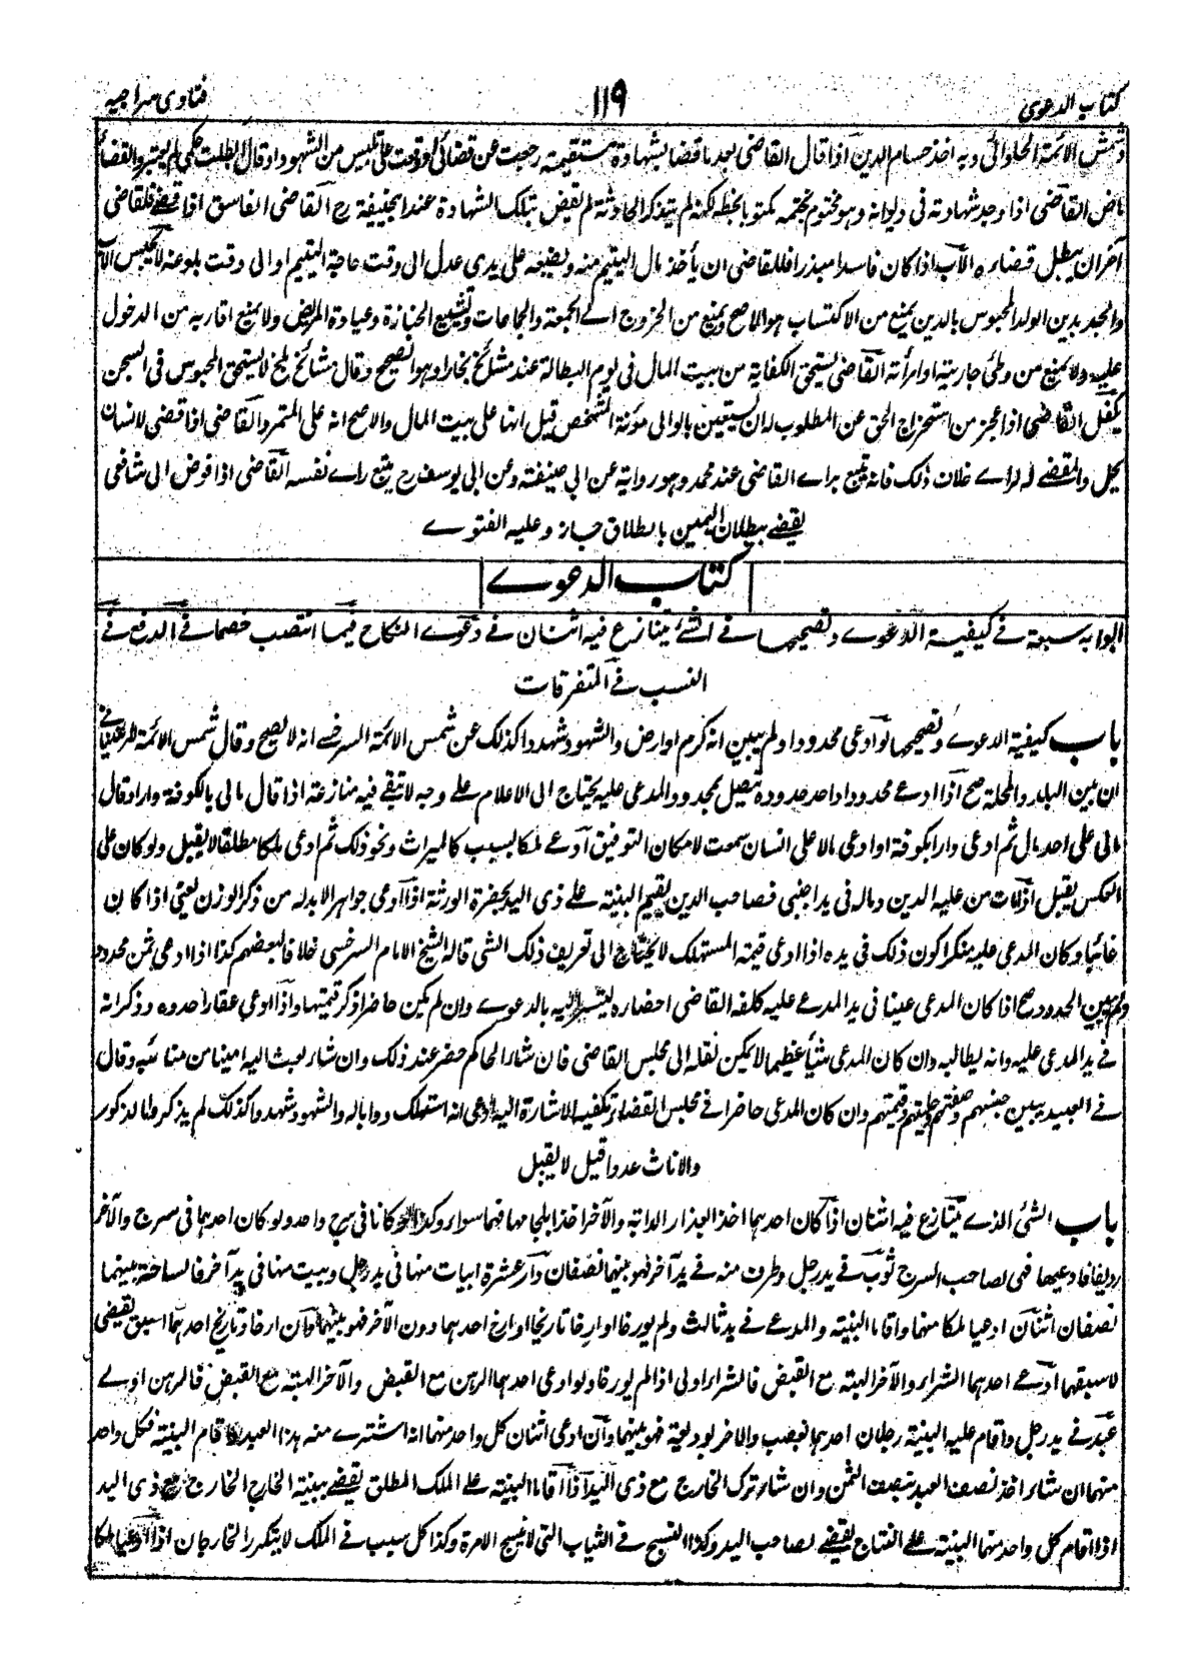 كتاب الدعوى ١١٩ فتاوى سراجيه
وشمس الائمة الحلوائى وبه اخذ حسام الدين اذا قال القاضى بعد ما قضا بشهادة مستقيمة رجعت عن قضائى او وقعت على تلبيس من الشهود او قال ابطلت حكمى لم يعتبر والقضاء
ماض القاضى اذا وجد شهادته فى ديوانه وهو مختوم بختمه مكتوبا بخطه لكنه لم يتذكر الحادثة لم يقض بتلك الشهادة عند ابيحنيفة رح القاضى الفاسق اذا قضى فلقاضى
آخر ان يبطل قضاءه الاب اذا كان فاسدا مبذرا فللقاضى ان يأخذ مال اليتيم منه ويضعه على يدى عدل الى وقت حاجة اليتيم او الى وقت بلوغه لا يحبس الاب
والجد بدين الولد المحبوس بالدين يمنع من الاكتساب هو الاصح ويمنع من الخروج الے الجمعة والجماعات وتشييع الجنازة وعيادة المريض ولا يمنع اقاربه من الدخول
عليه ولا يمنع من وطئ جاريته او امرأته القاضى يستحق الكفاية من بيت المال فى يوم البطالة عند مشائخ بخارا وهو الصحيح وقال مشائخ بلخ لا يستحق المحبوس فى السجن
يكفل القاضى اذا عجز من استخراج الحق عن المطلوب له ان يستعين بالوالى مؤنة الشخص قيل انها على بيت المال والاصح انه على المتمرد القاضى اذا قضى لانسان
بحل والمقضے له لراے خلاف ذلك فانه يتبع براے القاضى عند محمد وهو رواية عن ابى حنيفة وعن ابى يوسف رح يتبع راے نفسه القاضى اذا فوض الى شافعى
يقضے ببطلان اليمين بالطلاق جاز وعليه الفتوے
كتاب الدعوے
ابوابه سبعة فے كيفية الدعوے وتصحيحها فے الشئ يتنازع فيه اثنان فے دعوے النكاح فيما انتصب خصما فے الدفع فے
النسب فے المتفرقات
باب كيفية الدعوے وتصحيحها لو ادعى محدودا ولم يبين انه كرم او ارض والشهود شهدوا كذلك عن شمس الائمة السرخسے انه لا يصح وقال شمس الائمة
ان بين البلد والمحلة صح اذا ادعے محدودا واحد حدوده يتصل بمحدود المدعى عليه يحتاج الى الاعلام علے وجه لا تبقے فيه منازعة اذا قال مالى بالكوفة دار او قال
مالى على احد مال ثم ادعى دارا بكوفة او ادعى مالا على انسان سمعت لامكان التوفيق ادعے ملكا بسبب كالميراث ونحو ذلك ثم ادعى ملكا مطلقا لا يقبل ولو كان على
العكس يقبل اذا مات من عليه الدين وماله فى يد اجنبى فصاحب الدين يقيم البينة علے ذى اليد بحضرة الورثة اذا ادعى جواهر لابد له من ذكر الوزن يعنى اذا كان
غائبا وكان المدعى عليه منكرا كون ذلك فى يده اذا ادعى قيمة المستهلك لا يحتاج الى تعريف ذلك الشى قاله الشيخ الامام السرخسى خلافا لبعضهم كذا اذا ادعى ثمن محدود
ولم يبين الحدود صح اذا كان المدعى عينا فى يد المدعے عليه كلفه القاضى احضاره ليشير اليه بالدعوے وان لم يكن حاضرا ذكر قيمتها واذا ادعى عقارا حدده وذكر انه
فے يد المدعى عليه وانه يطالبه وان كان المدعى شيئا عظيما لا يمكن نقله الى مجلس القاضى فان شاء الحاكم حضر عند ذلك وان شاء بعث اليه امينا من منا ئبه وقال
فے العبيد يبين جنسهم وصفتهم وحليتهم وقيمتهم وان كان المدعى حاضرا فے مجلس القضاء تكفيه الاشارة اليه ادعى انه استهلك دوابا له والشهود شهدوا كذلك لم يذكروا الذكور
والاناث عدوا قيل لا يقبل
باب الشئ الذے يتنازع فيه اثنان اذا كان احدهما اخذ العذار الدابة والآخر اخذ بلجامها فهما سواء وكذا لو كانا فى سرج واحد ولو كان احدهما فى سرج والآخر
رديفا فادعيها فهى لصاحب السرج ثوب فے يد رجل وطرف منه فے يد آخر فهو بينهما نصفان دار عشرة ابيات منها فى يد رجل وبيت منها فى يد آخر فالساحة بينهما
نصفان اثنان ادعيا ملكا منهما واقاما البينة والمدعے فے يد ثالث ولم يورخا او ارخا تاريخا او ارخ احدهما دون الآخر فهو بينهما وان ارخا وتاريخ احدهما اسبق يقضى
لاسبقهما ادعے احدهما الشراء والآخر الهبة مع القبض فالشراء اولى اذا لم يورخا ولو ادعى احدهما الرهن مع القبض والآخر الهبة مع القبض فالرهن اولے
عبد فے يد رجل واقام عليه البينة رجلان احدهما بغصب والاخر بوديعة فهو بينهما وان ادعى اثنان كل واحد منهما انه اشترے منه هذا العبد واقام البينة فكل واحد
منهما ان شاء اخذ نصف العبد بنصف الثمن وان شاء ترك الخارج مع ذى اليد اذا اقاما البينة علے الملك المطلق يقضے ببينة الخارج الخارج مع ذى اليد
اذا اقام كل واحد منهما البينة علے النتاج يقضے لصاحب اليد وكذا النسج فے الثياب التى لا تنسج الا مرة وكذا كل سبب فے الملك لا يتكرر الخارجان اذا ادعيا ملكا